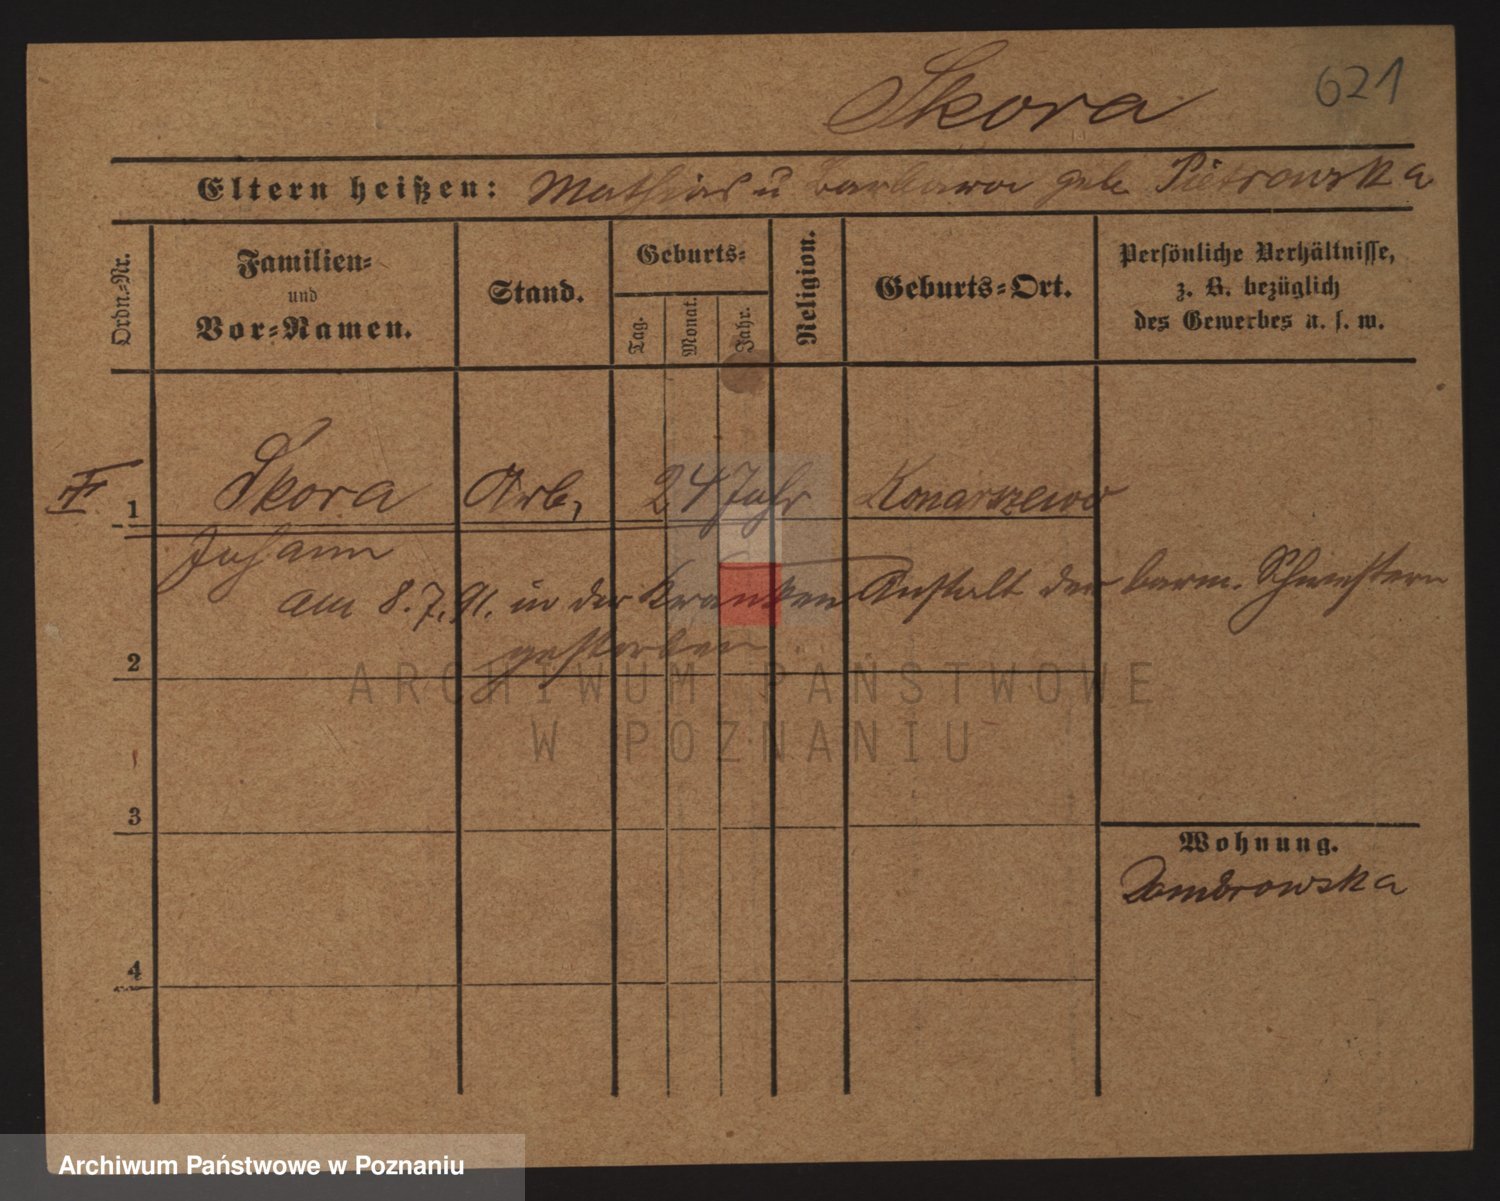 Skora
621
Eltern heißen: Mathias u Barbara geb. Pietrowska
Ordn.-Nr.
Familien-
und
Vor-Namen.
Stand.
Geburts-
Tag.
Monat.
Jahr.
Religion.
Geburts-Ort.
Persönliche Verhältnisse,
z. B. bezüglich
des Gewerbes u. s. w.
1 Skora Arb, 24 Jahr Konarzewo
Johann
am 8.7.91. in der Kranken Anstalt der barm. Schwestern
gestorben
2
ARCHIWUM PAŃSTWOWE
W POZNANIU
3
Wohnung.
Dombrowska
4
Archiwum Państwowe w Poznaniu